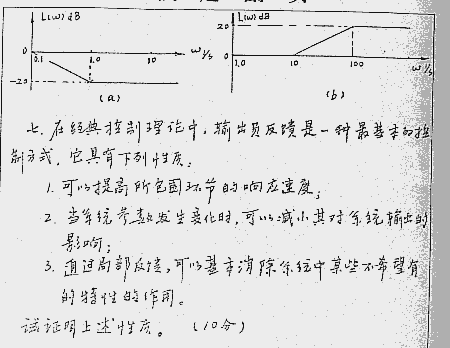 L(ω) dB
0
0.1
1.0
10
ω 1/s
-20
(a)
L(ω) dB
20
0
1.0
10
100
ω 1/s
(b)
七. 在经典控制理论中, 输出负反馈是一种最基本的控
制方式, 它具有下列性质:
1. 可以提高所包围环节的响应速度;
2. 当系统参数发生变化时, 可以减小其对系统输出的
影响;
3. 通过局部反馈, 可以基本消除系统中某些不希望有
的特性的作用。
试证明上述性质。 (10分)